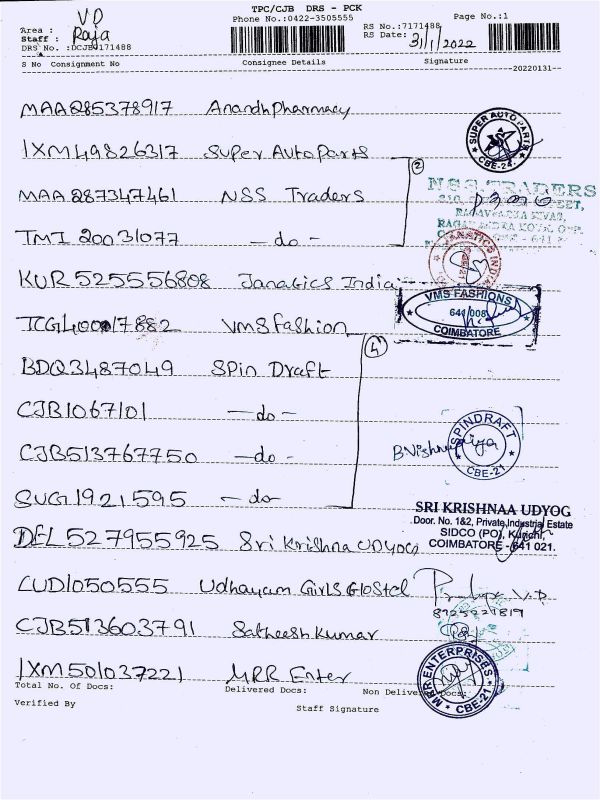 TPC/CJB DRS - PCK
VP
Phone No.:0422-3505555
RS No.:7171488
Page No.:1
Area :
Staff : Raja
RS Date: 31/1/2022
DRS No. :DCJB7171488
S No Consignment No Consignee Details Signature
20220131
MAA285378917 Anandh Pharmacy
SUPER AUTO PARTS
CBE-24.
IXM49826317 Super Auto Parts
2
MAA287347461 NSS Traders
NSS TRADERS
TMI 20031077 - do -
KUR 525556808 Janatics India
VMS FASHIONS
641 008
COIMBATORE
TCG400017882 VMS fashion
4
BDQ3487049 Spin Draft
CJB1067101 - do -
SPINDRAFT
CBE-21
CJB513767750 - do -
SUG1921595 - do -
SRI KRISHNAA UDYOG
Door. No. 1&2, Private Industrial Estate
SIDCO (PO), Kurichi,
COIMBATORE - 641 021.
DEL 527955925 Sri Krishna UDYOG
LUD1050555 Udhayam Girls Hostel
CJB513603791 Satheesh Kumar
IXM501037221 MRR Enter
MRR ENTERPRISES
CBE-21
Total No. Of Docs: Delivered Docs: Non Delivered Docs:
Verified By Staff Signature